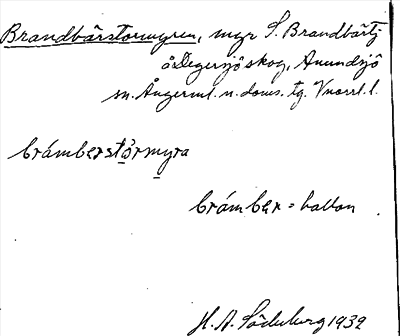 Brandbärstormyren, myr S. Brandbärtj
å Degersjö skog, Anundsjö
sn. Ångerml. n. doms. tg. Vnorrl. l.
brámberstọrmyra
brámber = hallon
H. A. Söderberg 1932